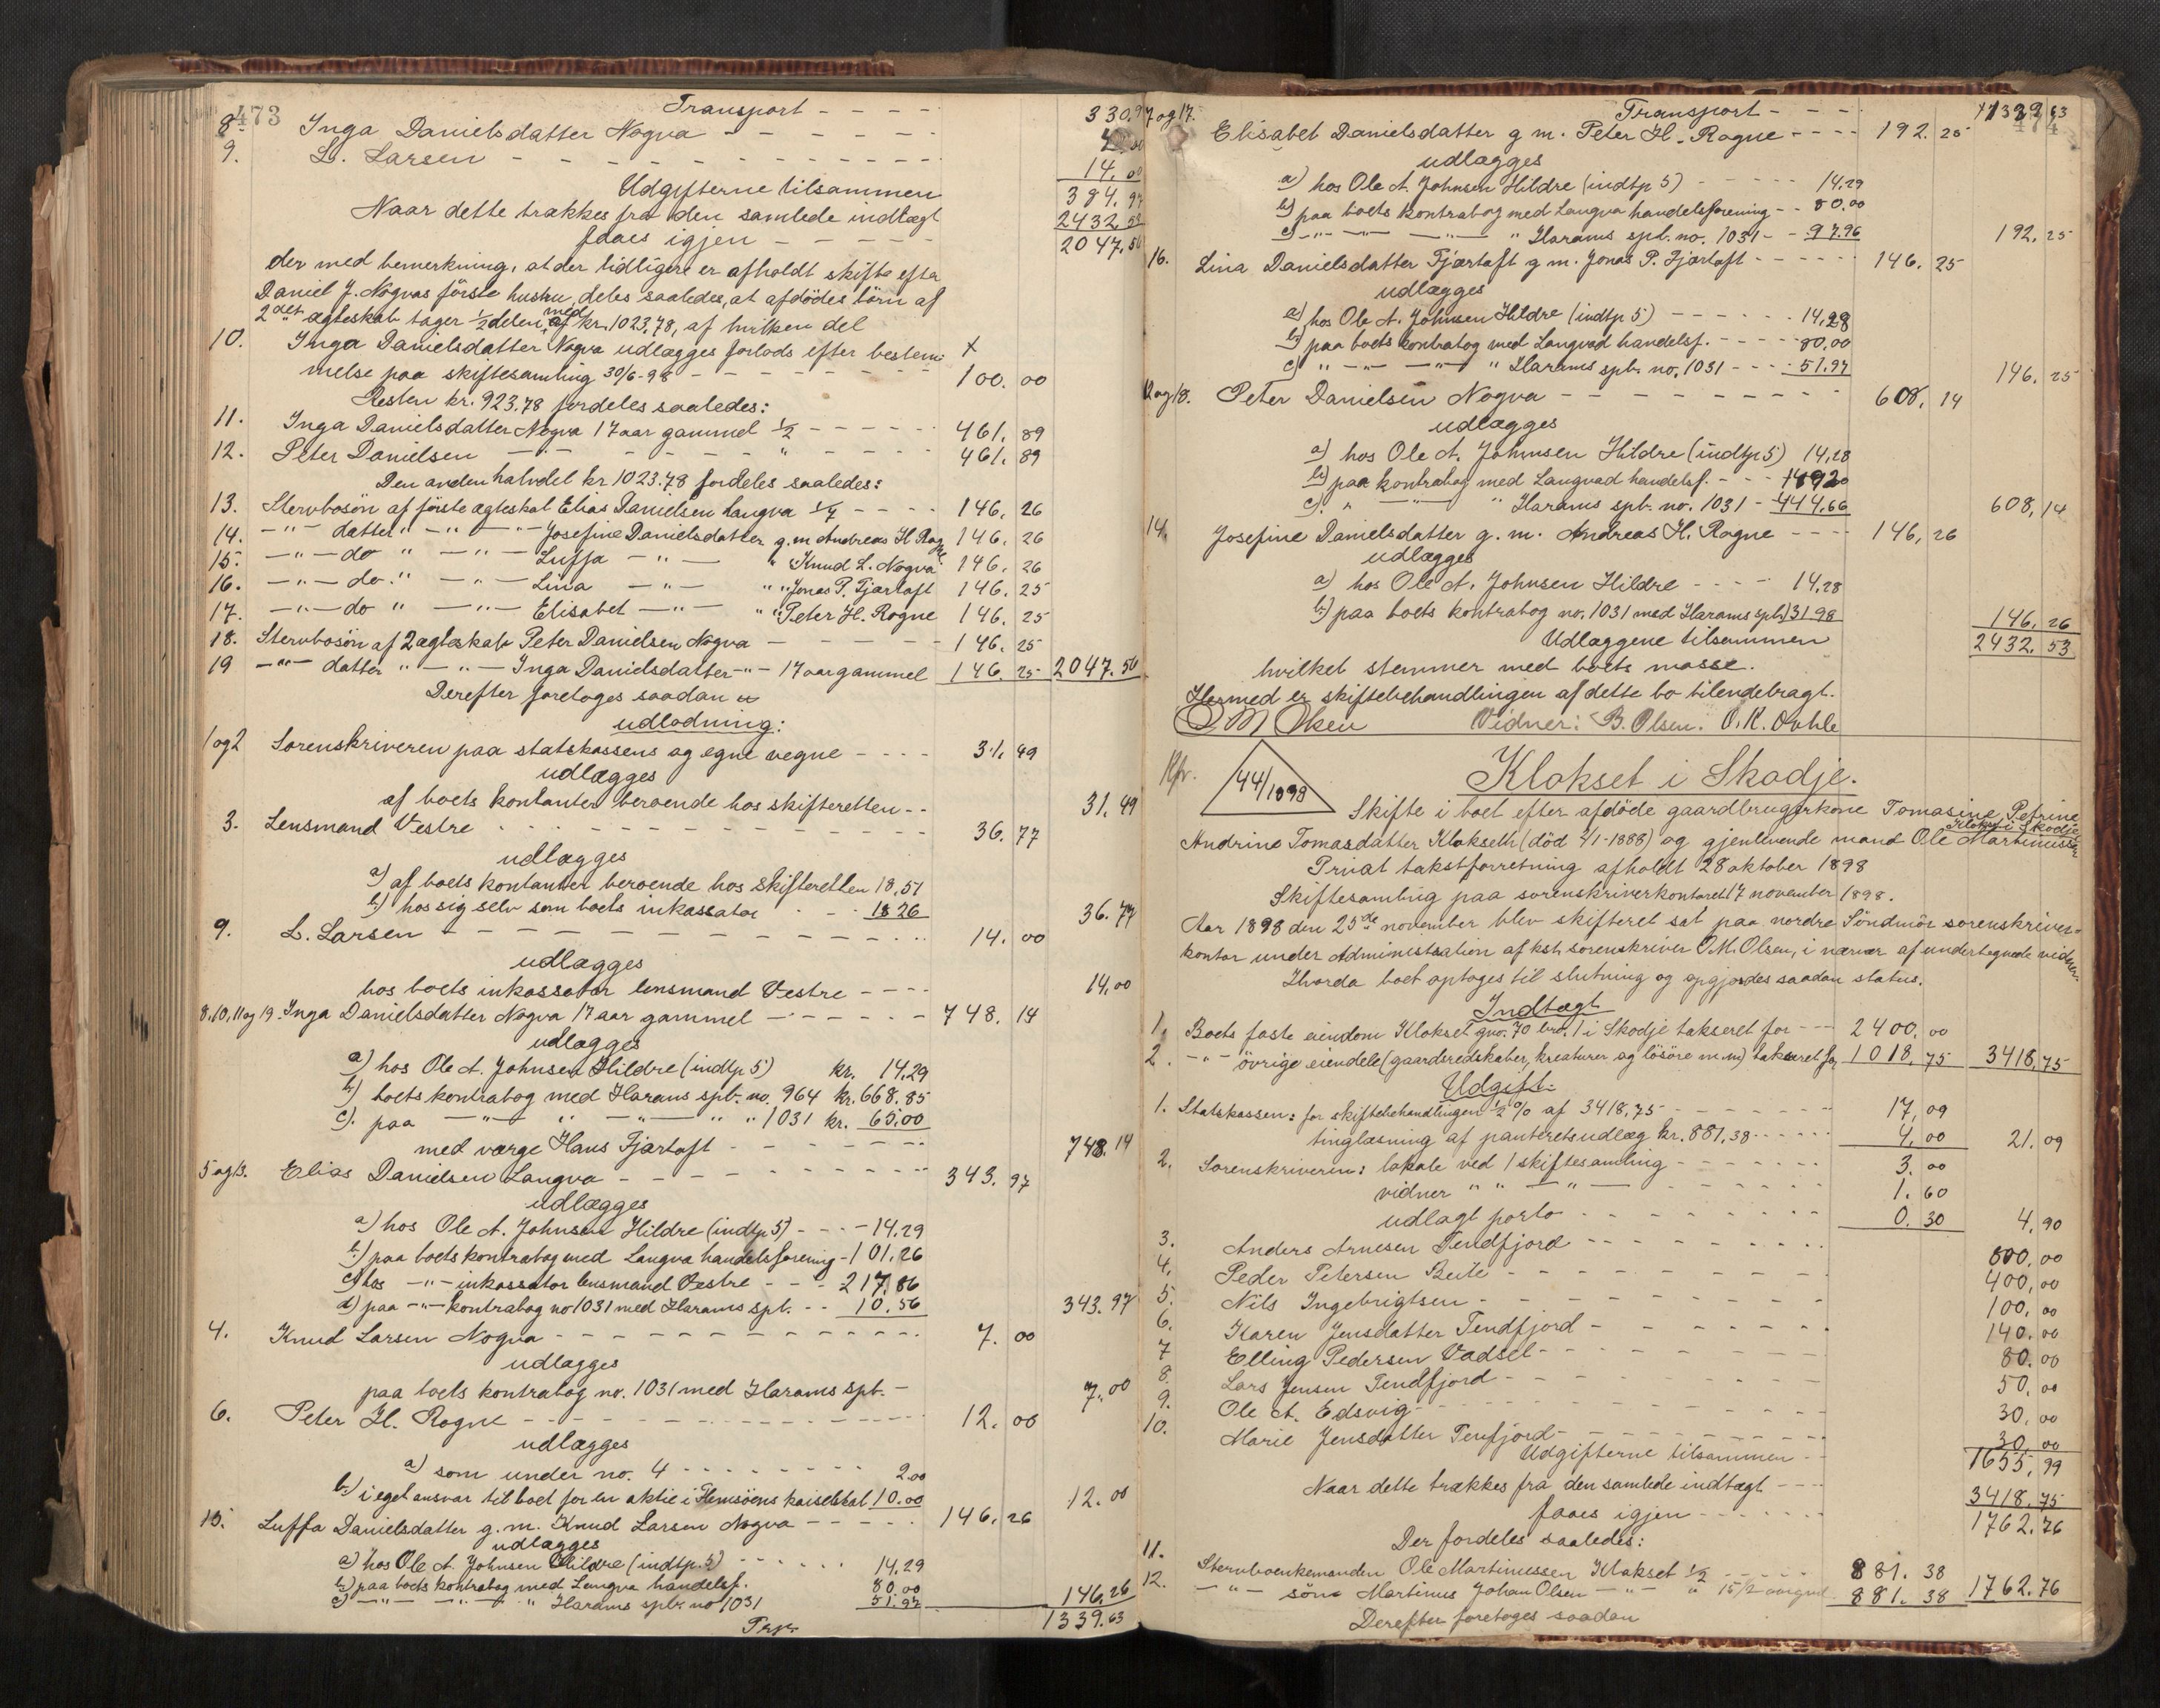 473
Transport - - - - 330.9
8. Inga Danielsdatter Nogva - - - - - -
9. L. Larsen - - - - - - - - 14.00
Udgifterne tilsammen 384.97
Naar dette trækkes fra den samlede indtægt 2432.53
faaes igjen - - - - - 2047.56
der med bemerkning, at der tidligere er afholdt skifte efter
Daniel J. Nogvas første hustru, deles saaledes, at afdødes børn af
2det ægteskab tager ½delen, med kr. 1023.78, af hvilken del
10. Inga Danielsdatter Nogva udlægges forlods efter bestem-
melse paa skiftesamling 30/6-98 - - - - - - 100.00
Resten kr. 923.78 fordeles saaledes:
11. Inga Danielsdatter Nogva 17 aar gammel ½ - - - - - 461.89
12. Peter Danielsen - - - - - " - - - - 461.89
Den anden halvdel kr 1023.78 fordeles saaledes:
13. Stervbosøn af første ægteskab Elias Danielsen Langva 1/7 - - - - 146.26
14. -"- datter " -"- -"- Josefine Danielsdatter g.m. Andreas H Rogne 146.26
15. -"- do " -"- Luffa -"- " Knud L. Nogva 146.26
16. -"- do. " -"- Lina -"- " " Jonas P. Fjærtoft 146.25
17. -"- do " -"- Elisabet -"- " " Peter H. Rogne 146.25
18. Stervbosøn af 2 ægteskab Peter Danielsen Nogva - - - - 146.25
19 -"- datter " -"- Inga Danielsdatter -"- 17 aar gammel 146.25 2047.56
Derefter foretoges saadan
udlodning:
1 og 2 Sorenskriveren paa statskassens og egne vegne - - - - 31.49
udlægges
af boets kontanter beroende hos skifteretten - - 31.49
3. Lensmand Vestre - - - - - - - - - 36.77
udlægges
a) af boets kontanter beroende hos skifteretten 18,51
b) hos sig selv som boets inkassator - - 18 26 36.77
9. L. Larsen - - - - - - - - - - 14.00
udlægges
hos boets inkassator lensmand Vestre - - - - 14,00
8, 10, 11 og 19. Inga Danielsdatter Nogva 17 aar gammel - - - - - 748.14
udlægges
a) hos Ole A. Johnsen Hildre (indtp 5) kr. 14,29
b) boets kontrabog med Harams spb. no. 964 kr. 668.85
c). paa -"- " -"- " " 1031 kr. 65,00
med værge Hans Fjærtoft - - - - - 748.14
5 og 13. Elias Danielsen Langva - - - - - - - 343.97
udlægges
a) hos Ole A. Johnsen Hildre (indtp 5) - - - 14,29
b.) paa boets kontrabog med Langva handelsforening - 101,26
c) hos -"- inkassator lensmand Vestre - - - 217,86
d) paa -"- kontrabog no 1031 med Harams spb. - - 10.56 343.97
4. Knud Larsen Nogva - - - - - - - - - 7.00
udlægges
paa boets kontrabog no. 1031 med Harams spb. - 7.00
6. Peter H. Rogne - - - - - - - - - 12.00
udlægges
a) som under no. 4 - - - - - - - 2,00
b.) i eget ansvar til boet for en aktie i Flemsøens kaiselskab 10.00 12.00
15. Luffa Danielsdatter g.m. Knud Larsen Nogva - - - - - 146.26
udlægges
a) hos Ole A. Johnsen Hildre (indtp. 5) - - - - - 14,29
b) paa boets kontrabog med Langva handelsf. 80,00
c) -"- -"- " Harams spb. no 1031 51.97 146.26
1339.63
474
Transport - - - - 1339 63
7 og 17. Elisabet Danielsdatter g m. Peter H. Rogne - - - - 192.25
udlægges
a) hos Ole A. Johnsen Hildre (indtp 5) - - - - - 14,29
b) paa boets kontrabog med Langva handelsforening - - 80.00
c) -"- -"- " Harams spb. no. 1031 - - 97.96 192,25
16. Lina Danielsdatter Fjærtoft g m. Jonas P. Fjærtoft - - - - - 146.25
udlægges
a) hos Ole A. Johnsen Hildre (indtp 5) - - - - - - 14,28
b) paa boets kontrabog med Langvad handelsf. - - - - - 80,00
c) " -"- -"- " Harams spb. no. 1031 - - - - 51.97 146.25
12 og 18. Peter Danielsen Nogva - - - - - - - - 608,14
udlægges
a) hos Ole A. Johnsen Hildre (indtp 5) 14,28
b) paa kontrabog med Langvad handelsf. - - -
c). " -"- " Harams spb. no. 1031 - 444,66 608,14
14. Josefine Danielsdatter g. m. Andreas H. Rogne - - - - 146,26
udlægges
a) hos Ole A. Johnsen Hildre - - - - 14,28
b.) paa boets kontrabog no. 1031 med Harams spb. 131.98 146,26
Udlæggene tilsammen 2432.53
hvilket stemmer med boets masse.
Hermed er skiftebehandlingen af dette bo tilendebragt.
O M Olsen Vidner: B. Olsen. O. K. Ovhle
44/1898
Klokset i Skodje.
Skifte i boet efter afdøde gaardbrugerkone Tomasine Petrine
Andrine Tomasdatter Klokseth (død 2/1-1888) og gjenlevende mand Ole Martinussen
Klokset i Skodje
Privat takstforretning afholdt 28 oktober 1898
Skiftesamling paa sorenskriverkontoret 17 november 1898.
Aar 1898 den 25de november blev skifteret sat paa nordre Søndmør sorenskriver-
kontor under Administration af kst. sorenskriver O.M. Olsen, i nærvær af undertegnede vidner.
Hvorda boet optoges til slutning og opgjordes saadan status.
Indtægt
1. Boets faste eiendom Klokset gno. 70 bno. 1 i Skodje takseret for - - - 2400.00
2. -"- øvrige eiendele (gaardsredskaber, kreaturer og løsøre m.m) takseret for 1018,75 3418,75
Udgift:
1. Statskassen: for skiftebehandlingen ½% af 3418,75 - - - - - - - 17,09
tinglæsning af panteretsudlæg kr. 881,38 - - - - - - 4,00 21.09
2. Sorenskriveren: lokale ved 1 skiftesamling - - - - - - - 3.00
vidner " " -"- - - - - - - 1.60
udlagt porto - - - - - - - - 0.30 4,90
3. Anders Arnesen Tendfjord - - - - - - - - 800,00
4. Peder Petersen Beite - - - - - - - - - 400,00
5. Nils Ingebrigtsen - - - - - - - - - 100,00
6. Karen Jensdatter Tendfjord - - - - - - - 140.00
7 Elling Pedersen Vadset - - - - - - - - 80.00
8. Lars Jensen Tendfjord - - - - - - - - 50,00
9. Ole A. Edsvig - - - - - - - - - - 30,00
10. Marie Jensdatter Tenfjord - - - - - - - - 30,00
Udgifterne tilsammen - - 1655,99
Naar dette trækkes fra den samlede indtægt - - - 3418,75
faaes igjen - - - - - - - 1762.76
Der fordeles saaledes:
11. Stervboenkemanden Ole Martinussen Klokset ½ - - - - - 881.38
12. -"- søn Martinus Johan Olsen -"- " 881.38 1762.76
Derefter foretoges saadan